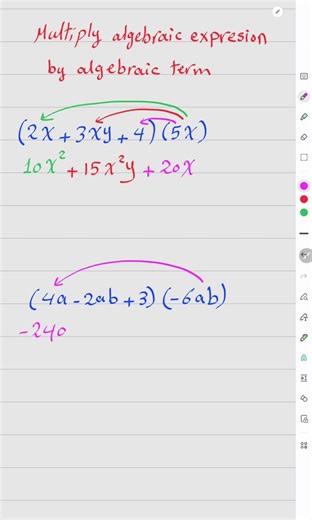 Multiply algebraic expresion
by algebraic term
(2x + 3xy + 4) (5x)
10x² + 15x²y + 20x
(4a - 2ab + 3) (-6ab)
-24a